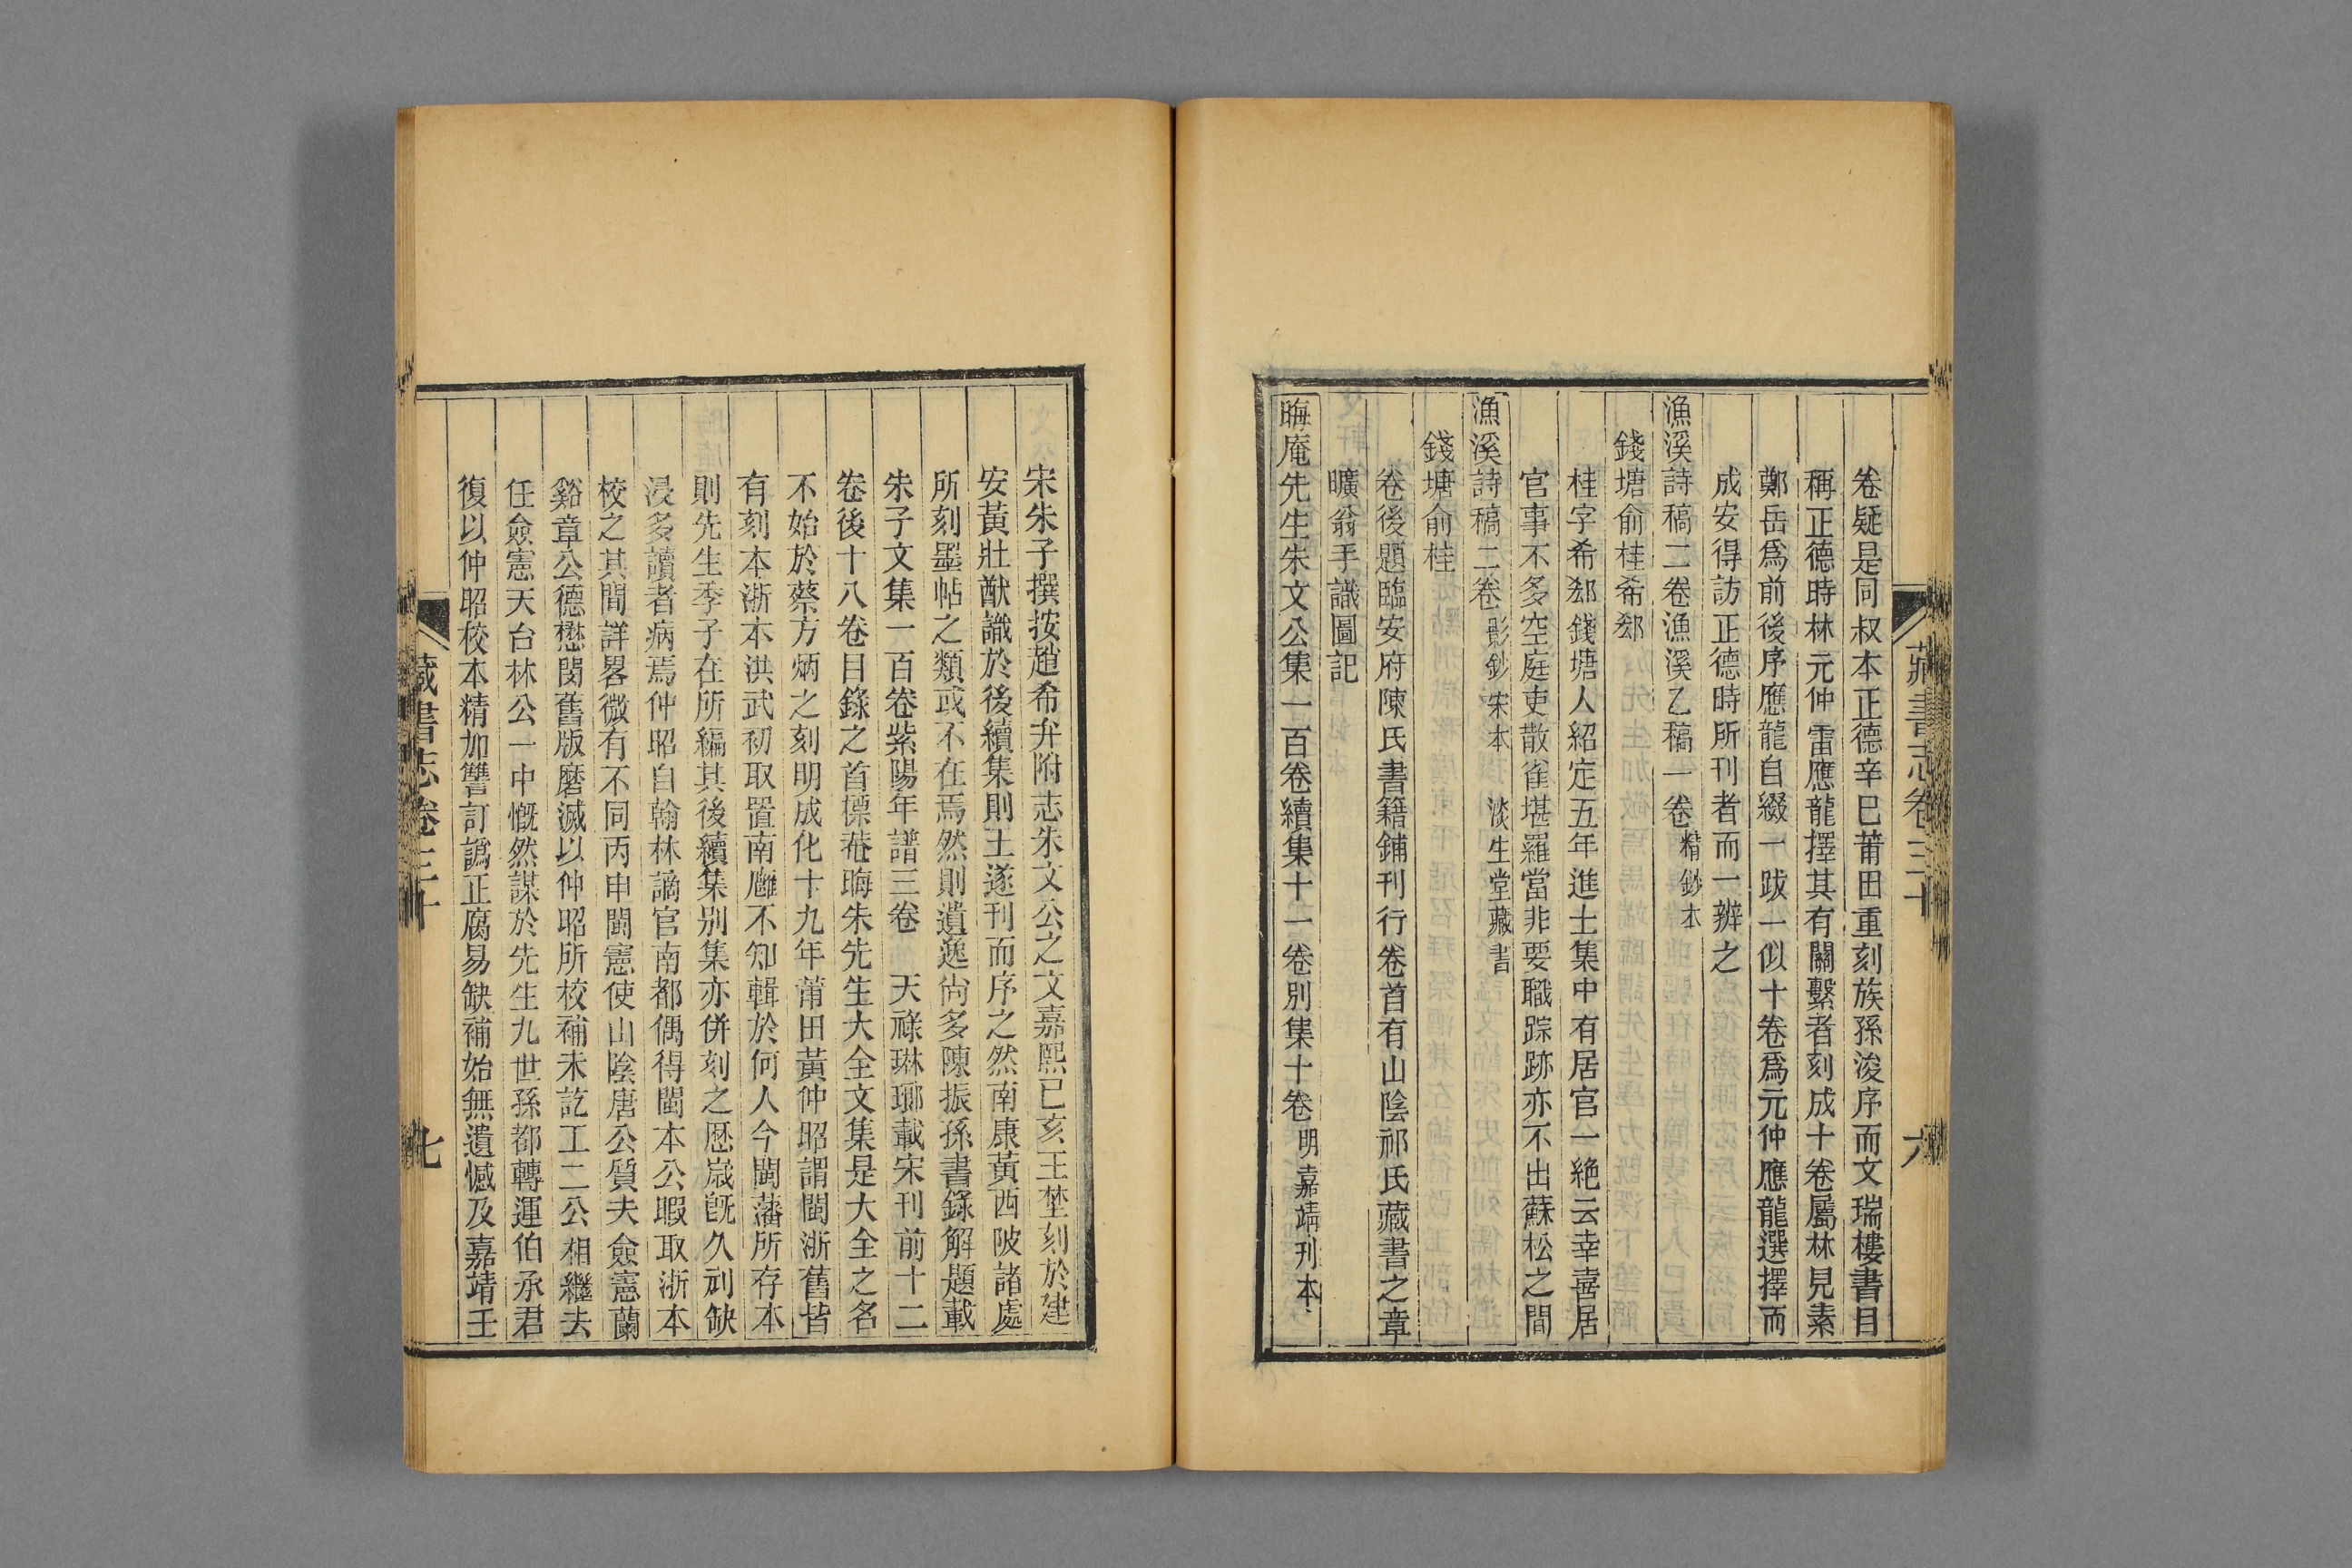 藏書志卷三十
六
卷疑是同叔本正德辛巳莆田重刻族孫浚序而文瑞樓書目
稱正德時林元仲雷應龍擇其有關繫者刻成十卷屬林見素
鄭岳爲前後序應龍自綴一跋一似十卷爲元仲應龍選擇而
成安得訪正德時所刊者而一辨之
漁溪詩稿二卷漁溪乙稿一卷精鈔本
錢塘俞桂希郄
桂字希郄錢塘人紹定五年進士集中有居官一絶云幸喜居
官事不多空庭吏散雀堪羅當非要職踪跡亦不出蘇松之間
漁溪詩稿二卷影鈔宋本 淡生堂藏書
錢塘俞桂
卷後題臨安府陳氏書籍鋪刊行卷首有山陰祁氏藏書之章
曠翁手識圖記
晦庵先生朱文公集一百卷續集十一卷別集十卷明嘉靖刊本
宋朱子撰按趙希弁附志朱文公之文嘉熙己亥王埜刻於建
安黃壯猷識於後續集則王遂刊而序之然南康黃西陂諸處
所刻墨帖之類或不在焉然則遺逸尙多陳振孫書錄解題載
朱子文集一百卷紫陽年譜三卷 天祿琳瑯載宋刊前十二
卷後十八卷目錄之首標菴晦朱先生大全文集是大全之名
不始於蔡方炳之刻明成化十九年莆田黃仲昭謂閩浙舊皆
有刻本浙本洪武初取置南雝不知輯於何人今閩藩所存本
則先生季子在所編其後續集别集亦併刻之歷嵗旣久刓缺
浸多讀者病焉仲昭自翰林謫官南都偶得閩本公暇取浙本
校之其間詳畧微有不同丙申閩憲使山陰唐公質夫僉憲蘭
谿章公德懋閔舊版磨滅以仲昭所校補未訖工二公相繼去
任僉憲天台林公一中慨然謀於先生九世孫都轉運伯承君
復以仲昭校本精加讐訂譌正腐易缺補始無遺憾及嘉靖王
藏書志卷三十
七